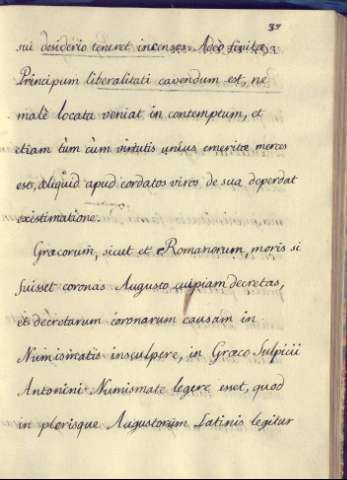 37
sui desiderio teneret incensos. Adeò
Principum liberalitati cavendum est, ne
malè locata veniat in contemptum, et
etiam tùm cùm virtutis unius emeritæ merces
est, aliquid apud cordatos viros de sua deperdat
existimatione.
Græcorum, sicut et Romanorum, moris si
fuisset coronas Augusto cuipiam decretas,
et decretarum coronarum causam in
Numismatis insculpere, in Græco Sulpicii
Antonini Numismate legere esset, quod
in plerisque Augustorum Latinis legitur